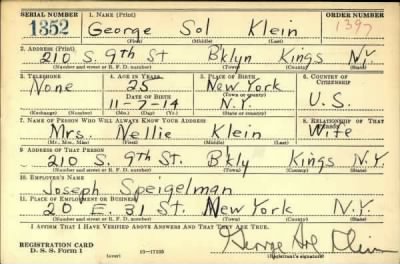 SERIAL NUMBER 1. NAME (Print) ORDER NUMBER
1352 George Sol Klein 1397
(First) (Middle) (Last)
2. ADDRESS (Print)
210 S. 9th St Bklyn Kings N.Y.
(Number and street or R. F. D. number) (Town) (County) (State)
3. TELEPHONE 4. AGE IN YEARS 5. PLACE OF BIRTH 6. COUNTRY OF CITIZENSHIP
None 25 New York
DATE OF BIRTH (Town or county)
11-7-14 N.Y. U.S.
(Exchange) (Number) (Mo.) (Day) (Yr.) (State or country)
7. NAME OF PERSON WHO WILL ALWAYS KNOW YOUR ADDRESS 8. RELATIONSHIP OF THAT PERSON
Mrs. Nellie Klein Wife
(Mr., Mrs., Miss) (First) (Middle) (Last)
9. ADDRESS OF THAT PERSON
210 S. 9th St. Bkly Kings N.Y.
(Number and street or R. F. D. number) (Town) (County) (State)
10. EMPLOYER'S NAME
Joseph Speigelman
11. PLACE OF EMPLOYMENT OR BUSINESS
20 E. 31 St. New York N.Y.
(Number and street or R. F. D. number) (Town) (County) (State)
I AFFIRM THAT I HAVE VERIFIED ABOVE ANSWERS AND THAT THEY ARE TRUE.
George Sol Klein
REGISTRATION CARD
D. S. S. Form 1 (over) (Registrant's signature)